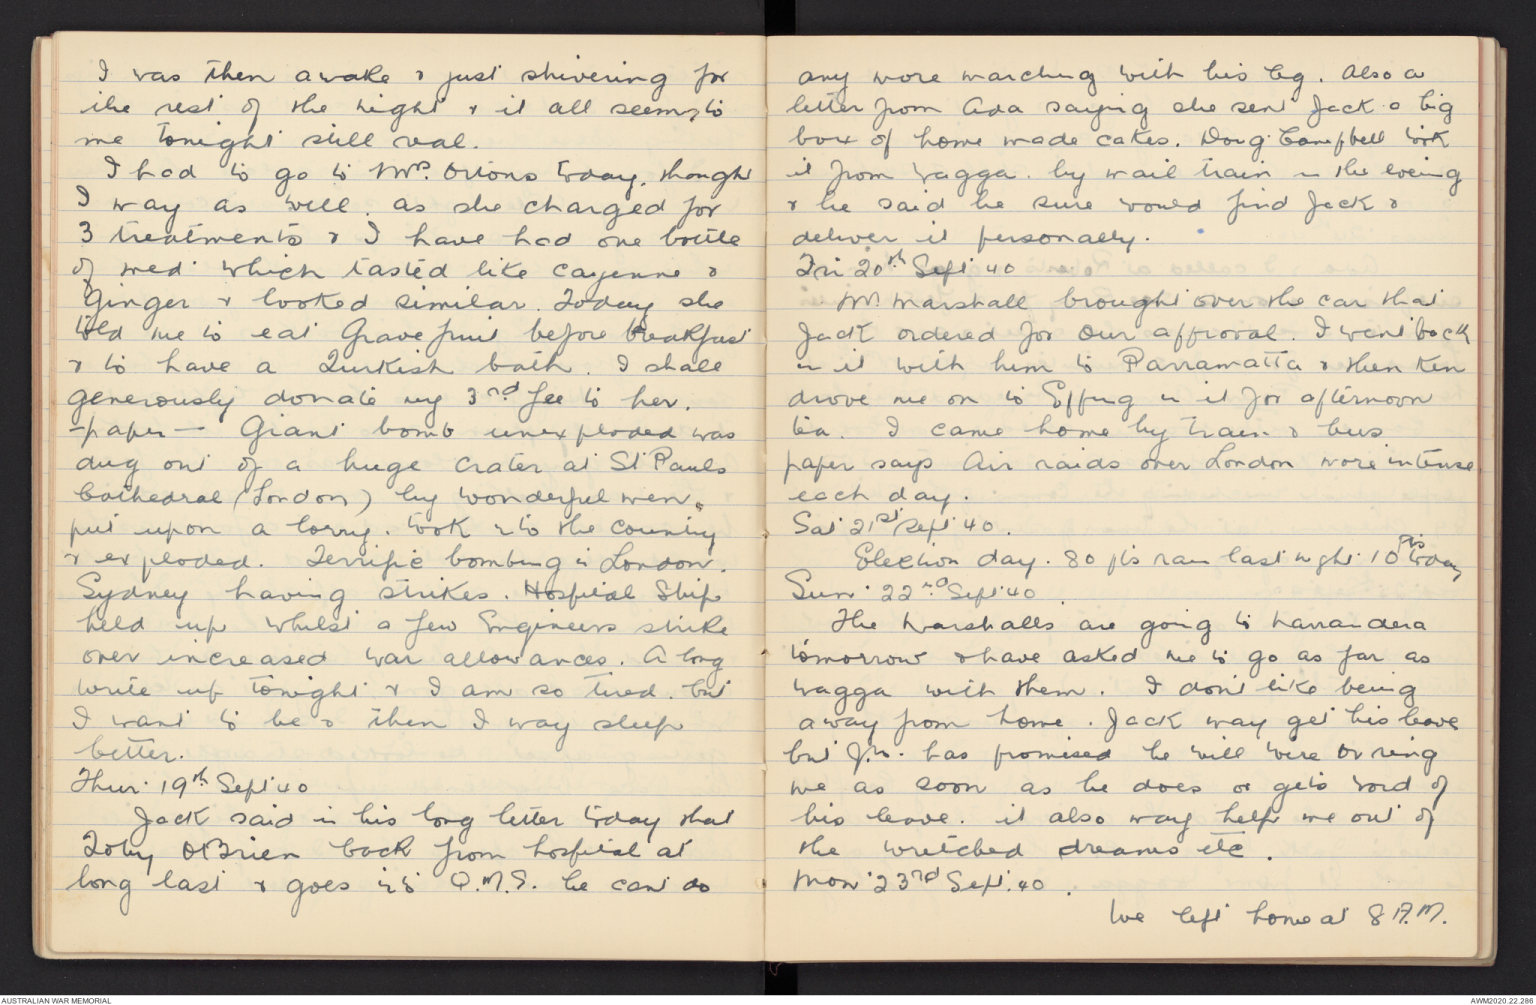 I was then awake & just shivering for
the rest of the night & it all seems to
me tonight still real.
I had to go to Mrs. Ortons today. thought
I may as well. as she charged for
3 treatments & I have had one bottle
of med' which tasted like cayenne &
Ginger & looked similar. Today she
told me to eat Grapefruit before breakfast
& to have a Turkish bath. I shall
generously donate my 3rd fee to her.
-paper- Giant bomb unexploded was
dug out of a huge crater at St Pauls
Cathedral (London) by wonderful men.
put upon a lorry. took into the country
& exploded. Terrific bombing in London.
Sydney having strikes. Hospital Ship
held up whilst a few Engineers strike
over increased war allowances. A long
write up tonight & I am so tired. but
I want to be & then I may sleep
better.
Thur 19th Sept 40
Jack said in his long letter today that
Toby O'Brien back from hospital at
long last & goes into Q.M.S. he cant do
any more marching with his leg. Also a
letter from Ada saying she sent Jack a big
box of home made cakes. Doug Campbell took
it from Wagga. by mail train in the evening
& he said he sure would find Jack &
deliver it personally.
Fri 20th Sept 40
Mr. Marshall brought over the car that
Jack ordered for our approval. I went back
in it with him to Parramatta & then Ken
drove me on to Epping in it for afternoon
tea. I came home by train & bus
paper says Air raids over London more intense
each day.
Sat 21st Sept 40.
Election day. 80 pts rain last night 10 pts today
Sun 22nd Sept 40.
The Marshalls are going to Narrandera
tomorrow & have asked me to go as far as
Wagga with them. I don't like being
away from home. Jack may get his leave
but J.W. has promised he will wire or ring
me as soon as he does or gets word of
his leave. it also may help me out of
the wretched dreams etc.
Mon 23rd Sept. 40.
We left home at 8 A.M.
AUSTRALIAN WAR MEMORIAL
AWM2020.22.286